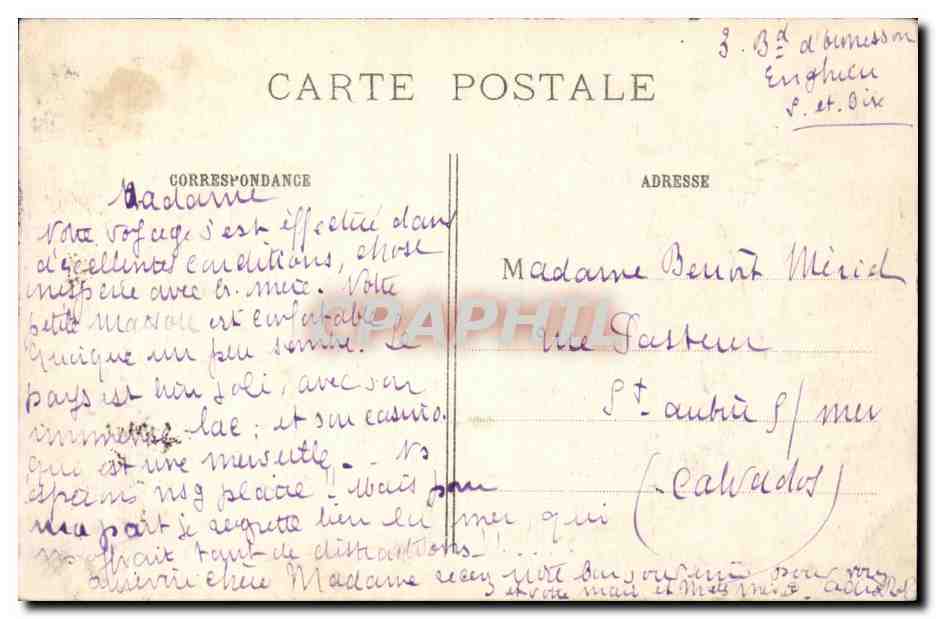 3. Bd d'Ormesson
Enghien
S. et. Oise
CARTE POSTALE
CORRESPONDANCE
ADRESSE
Madame
Notre voyage s'est effectué dans
d'excellentes conditions, chose
inespérée avec gr. mère. Notre
petite maison est confortable
quoique un peu sombre. Le
pays est bien joli, avec son
immense lac; et son casino.
qui est une merveille. Ns
espérons ns y plaire!! Mais pour
ma part je regrette bien la mer, qui
ns offrait tant de distractions!!....
chère Madame recevez notre bon souvenir pour vous
et votre mari et
Madame Benoît Méricl
rue Pasteur
St. aubin s/ mer
(Calvados)
CPAPHIL